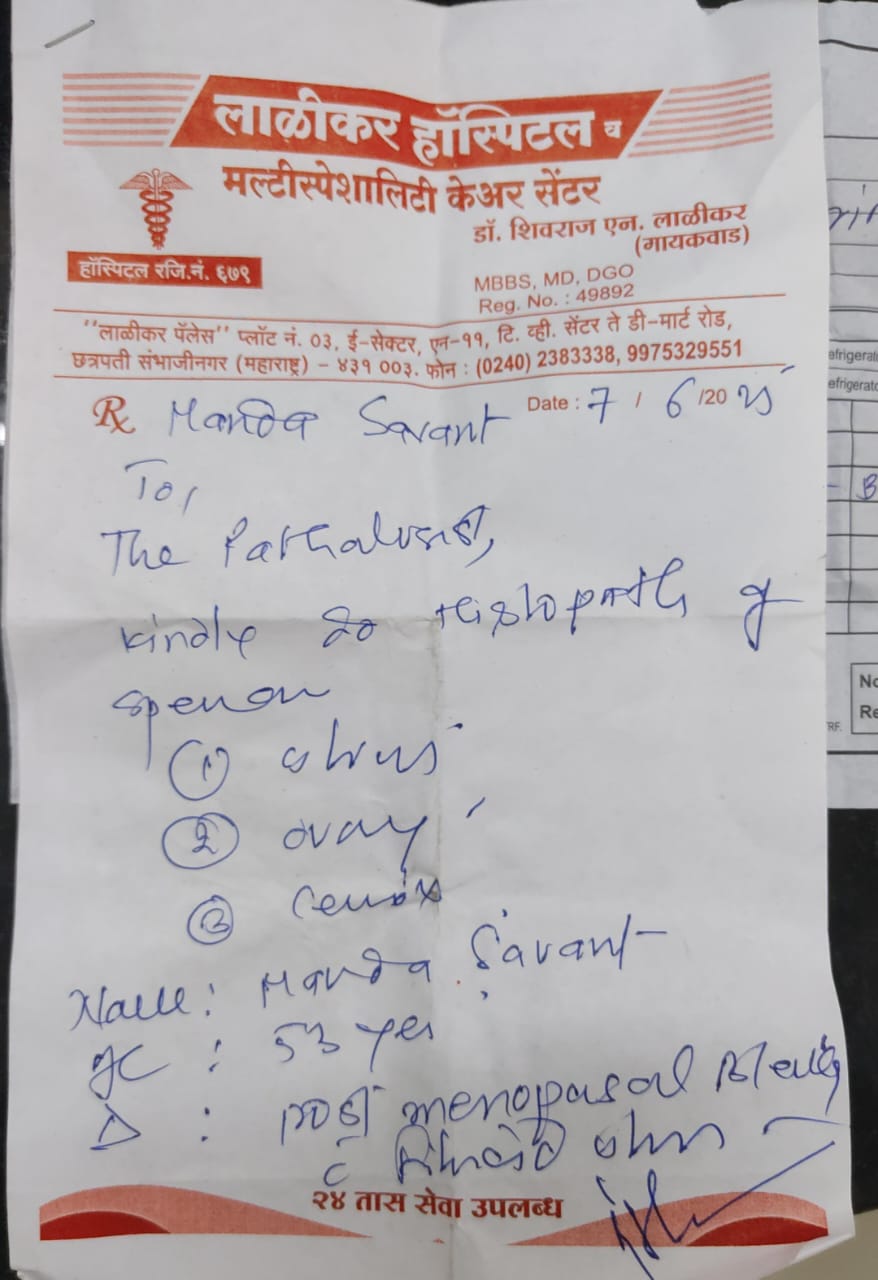 लाळीकर हॉस्पिटल व
मल्टीस्पेशालिटी केअर सेंटर
डॉ. शिवराज एन. लाळीकर
(गायकवाड)
हॉस्पिटल रजि.नं. ६७९
MBBS, MD, DGO
Reg. No. : 49892
"लाळीकर पॅलेस" प्लॉट नं. ०३, ई-सेक्टर, एन-११, टि. व्ही. सेंटर ते डी-मार्ट रोड,
छत्रपती संभाजीनगर (महाराष्ट्र) - ४३१ ००३. फोन : (0240) 2383338, 9975329551
Rx Manda Savant Date : 7 / 6 /20 25
To,
The Pathologist,
Kindly do Histopath of
① uterus
② ovary
③ Cervix
Name : Manda Savant
: 53 yrs
Δ : Post menopasal Bleeding
c̄ uterus
२४ तास सेवा उपलब्ध
efrigerat
efrigerato
B
No
Re
RF.